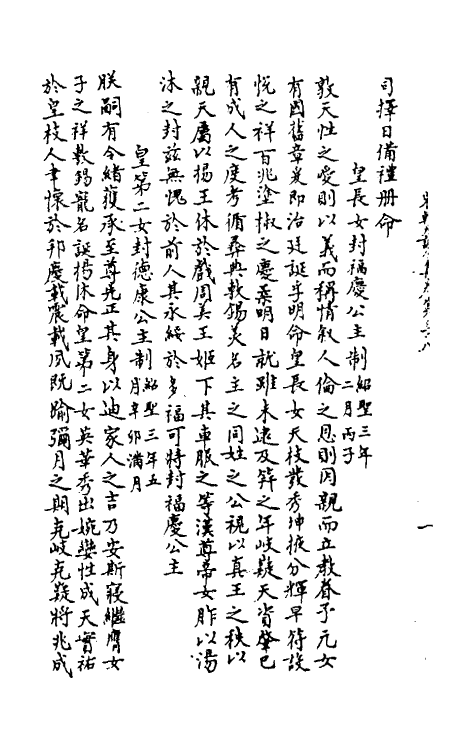 司擇日備禮册命
皇長女封福慶公主制紹聖三年二月丙子
敦天性之愛則以義而稱情敘人倫之恩則因親而立敎眷予元女
有國舊章爰即治廷誕孚明命皇長女天枝茂秀坤掖分輝早符設
帨之祥百兆塗椒之慶柔明日就雖未逮及笄之年岐嶷天資肇已
有成人之度考循彝典敷錫美名主之同姓之公視以真王之秩以
親天屬以揚王休於戲周美王姬下其車服之等漢尊帝女胙以湯
沐之封茲無愧於前人其永綏於多福可特封福慶公主
皇第二女封德康公主制紹聖三年五月辛卯滿月
朕嗣有令緒獲承至尊先正其身以迪家人之吉乃安斯寢繼膺女
子之祥敷錫寵名誕揚休命皇第二女英華秀出婉孌性成天實祐
於皇枝人聿懷於邦慶載震載夙既踰彌月之期克岐克嶷將兆成
一